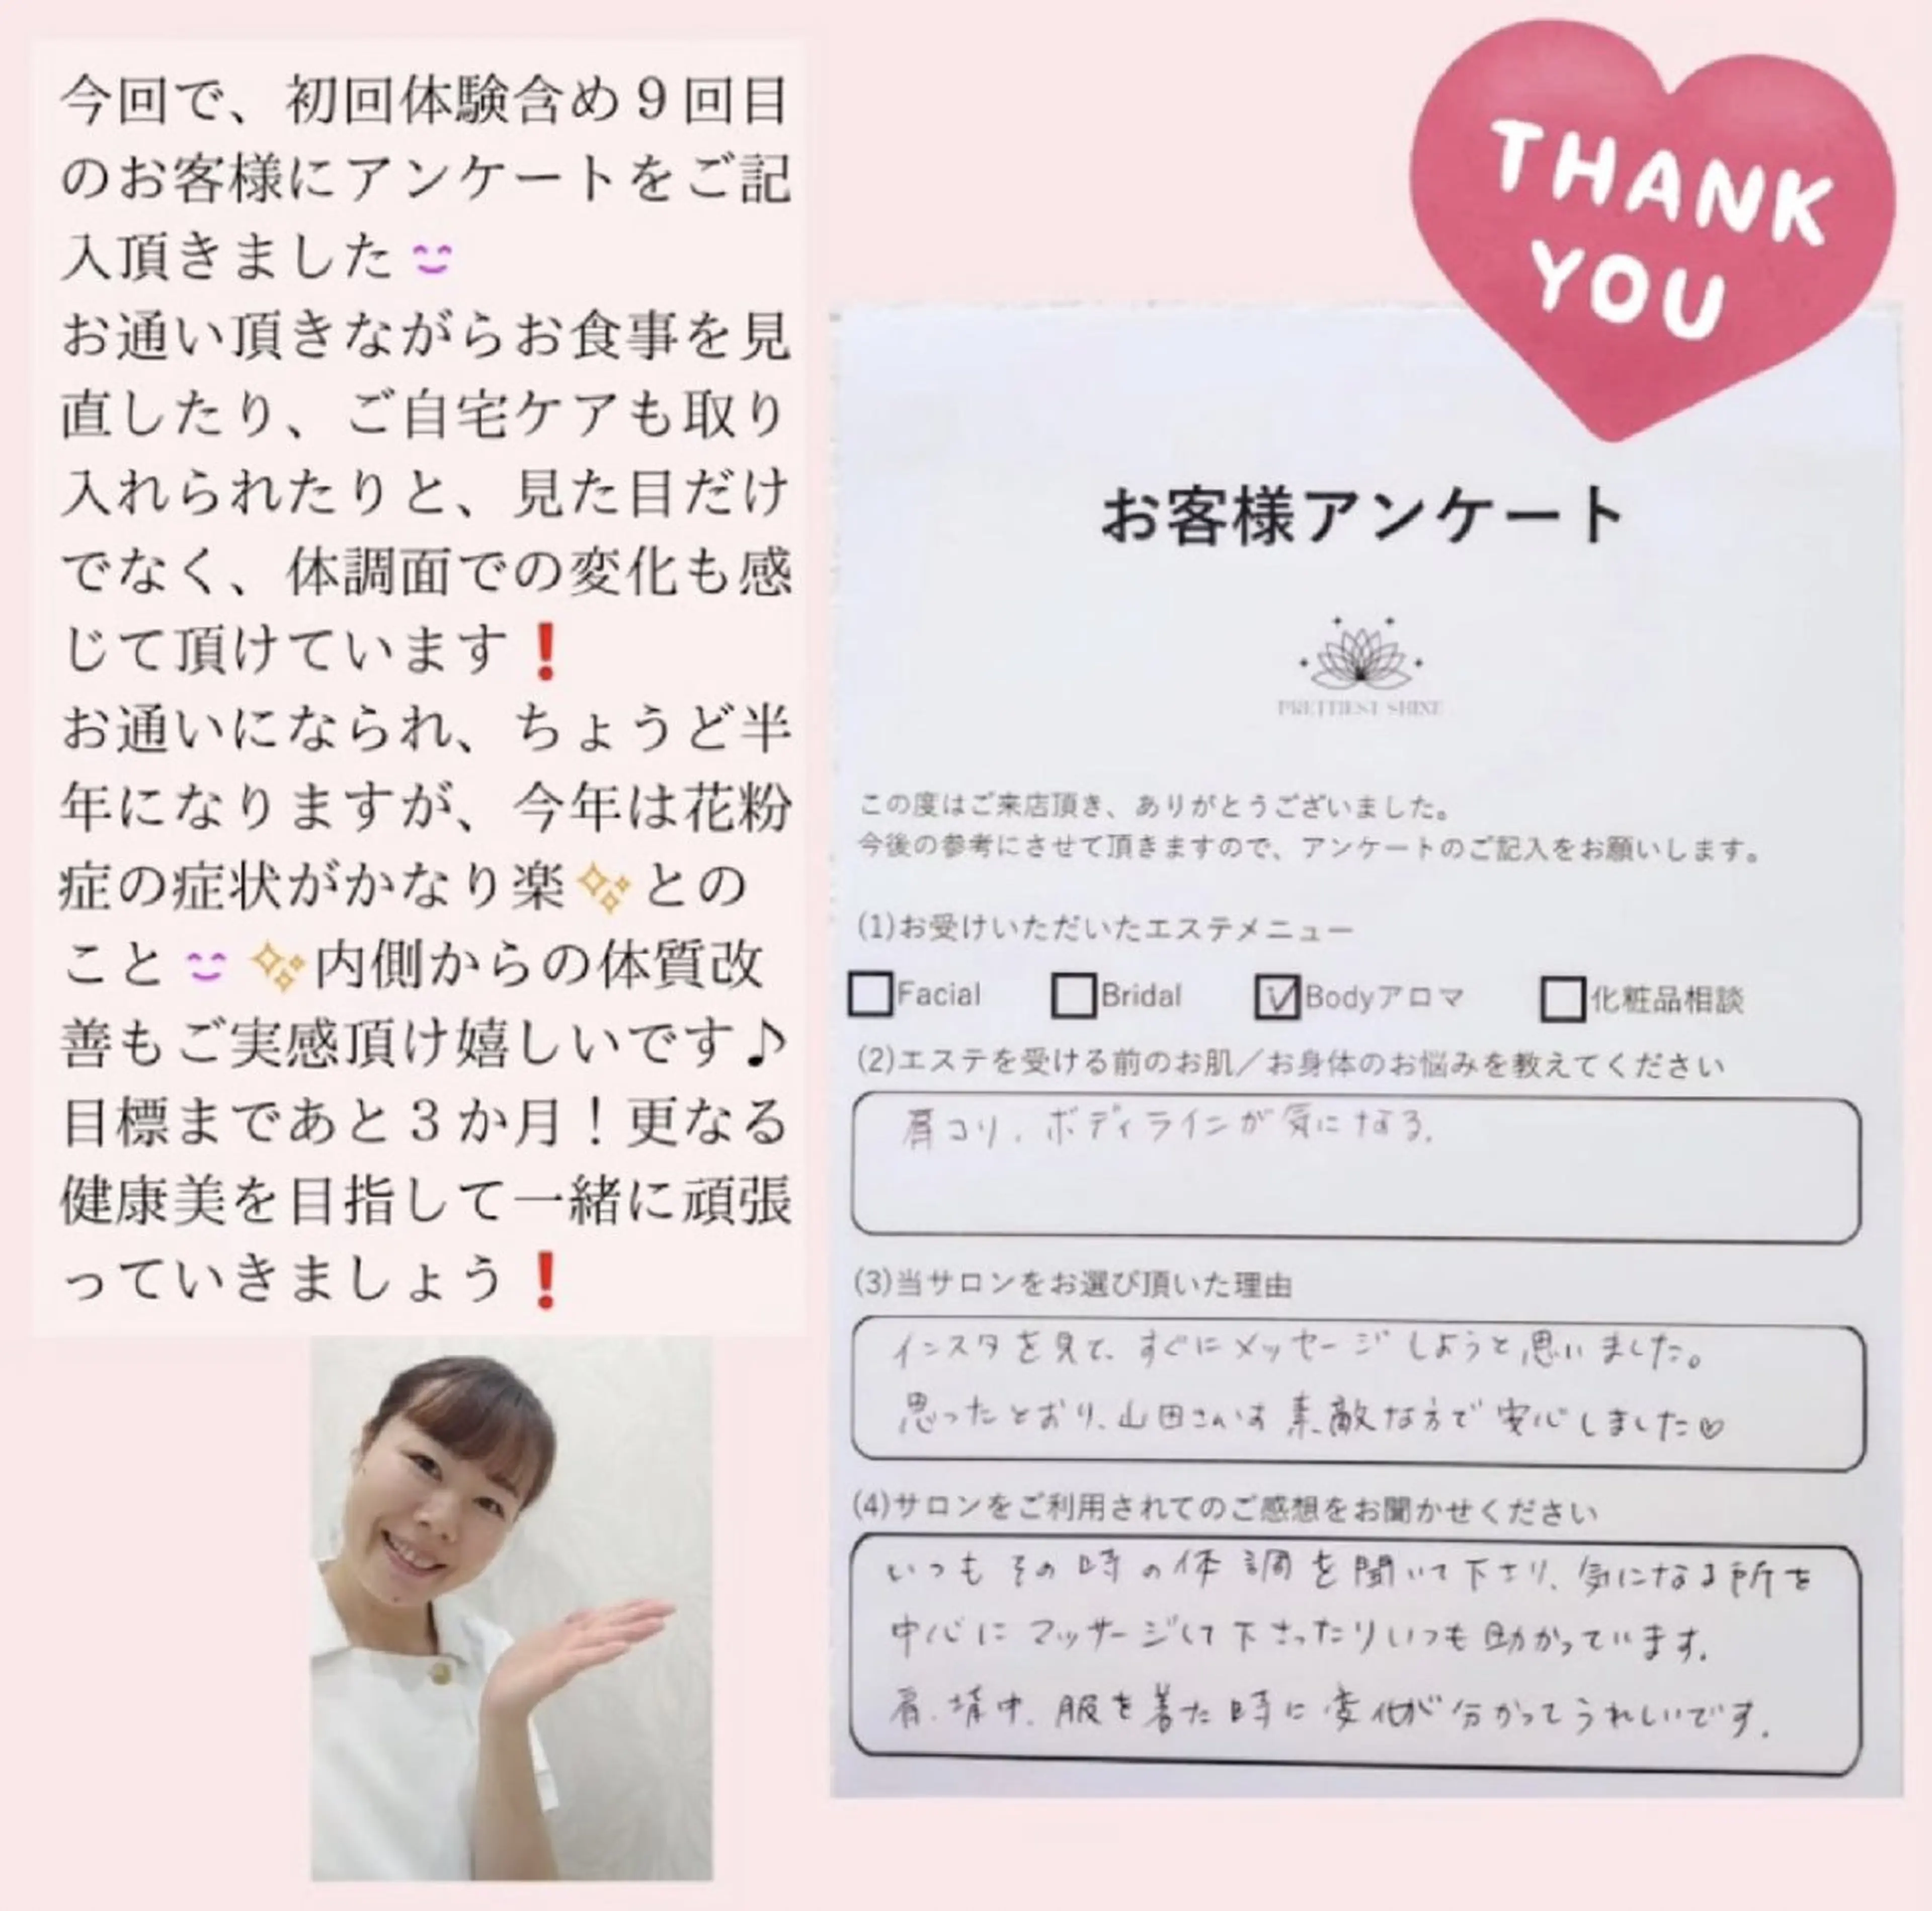 今回で、初回体験含め９回目
のお客様にアンケートをご記
入頂きました😊
お通い頂きながらお食事を見
直したり、ご自宅ケアも取り
入れられたりと、見た目だけ
でなく、体調面での変化も感
じて頂けています❗
お通いになられ、ちょうど半
年になりますが、今年は花粉
症の症状がかなり楽✨との
こと😊✨内側からの体質改
善もご実感頂け嬉しいです♪
目標まであと３か月！更なる
健康美を目指して一緒に頑張
っていきましょう❗
THANK
YOU
お客様アンケート
PRETTIEST SHINE
この度はご来店頂き、ありがとうございました。
今後の参考にさせて頂きますので、アンケートのご記入をお願いします。
(1)お受けいただいたエステメニュー
□Facial □Bridal ☑Bodyアロマ □化粧品相談
(2)エステを受ける前のお肌／お身体のお悩みを教えてください
肩コリ、ボディラインが気になる。
(3)当サロンをお選び頂いた理由
インスタを見て、すぐにメッセージしようと思いました。
思ったとおり、山田さんは素敵な方で安心しました♡
(4)サロンをご利用されてのご感想をお聞かせください
いつもその時の体調を聞いて下さり、気になる所を
中心にマッサージして下さったりいつも助かっています。
肩、背中、服を着た時に変化が分かってうれしいです。